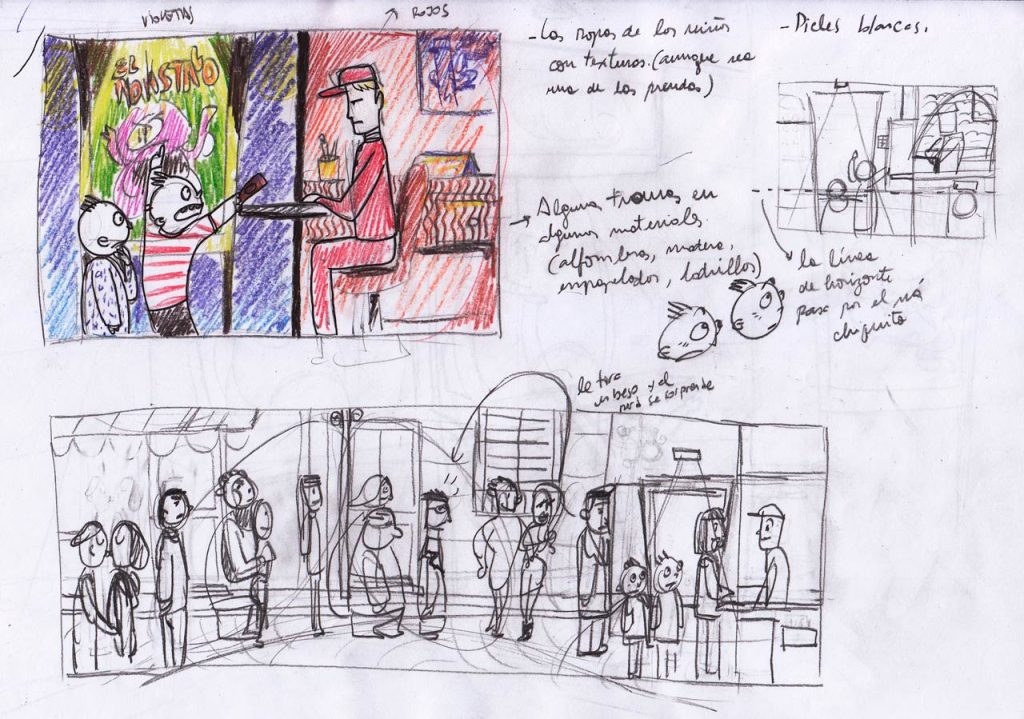 VIOLETAS
ROJOS
EL
MONSTRUO
- Las ropas de los niños
con texturas. (aunque sea
una de las prendas)
- Pieles blancas.
Algunas tramas en
algunos materiales.
(alfombras, madera,
empapelados, ladrillos)
la línea
de horizonte
pasa por el más
chiquito
le tira
un beso y el
nerd se sorprende